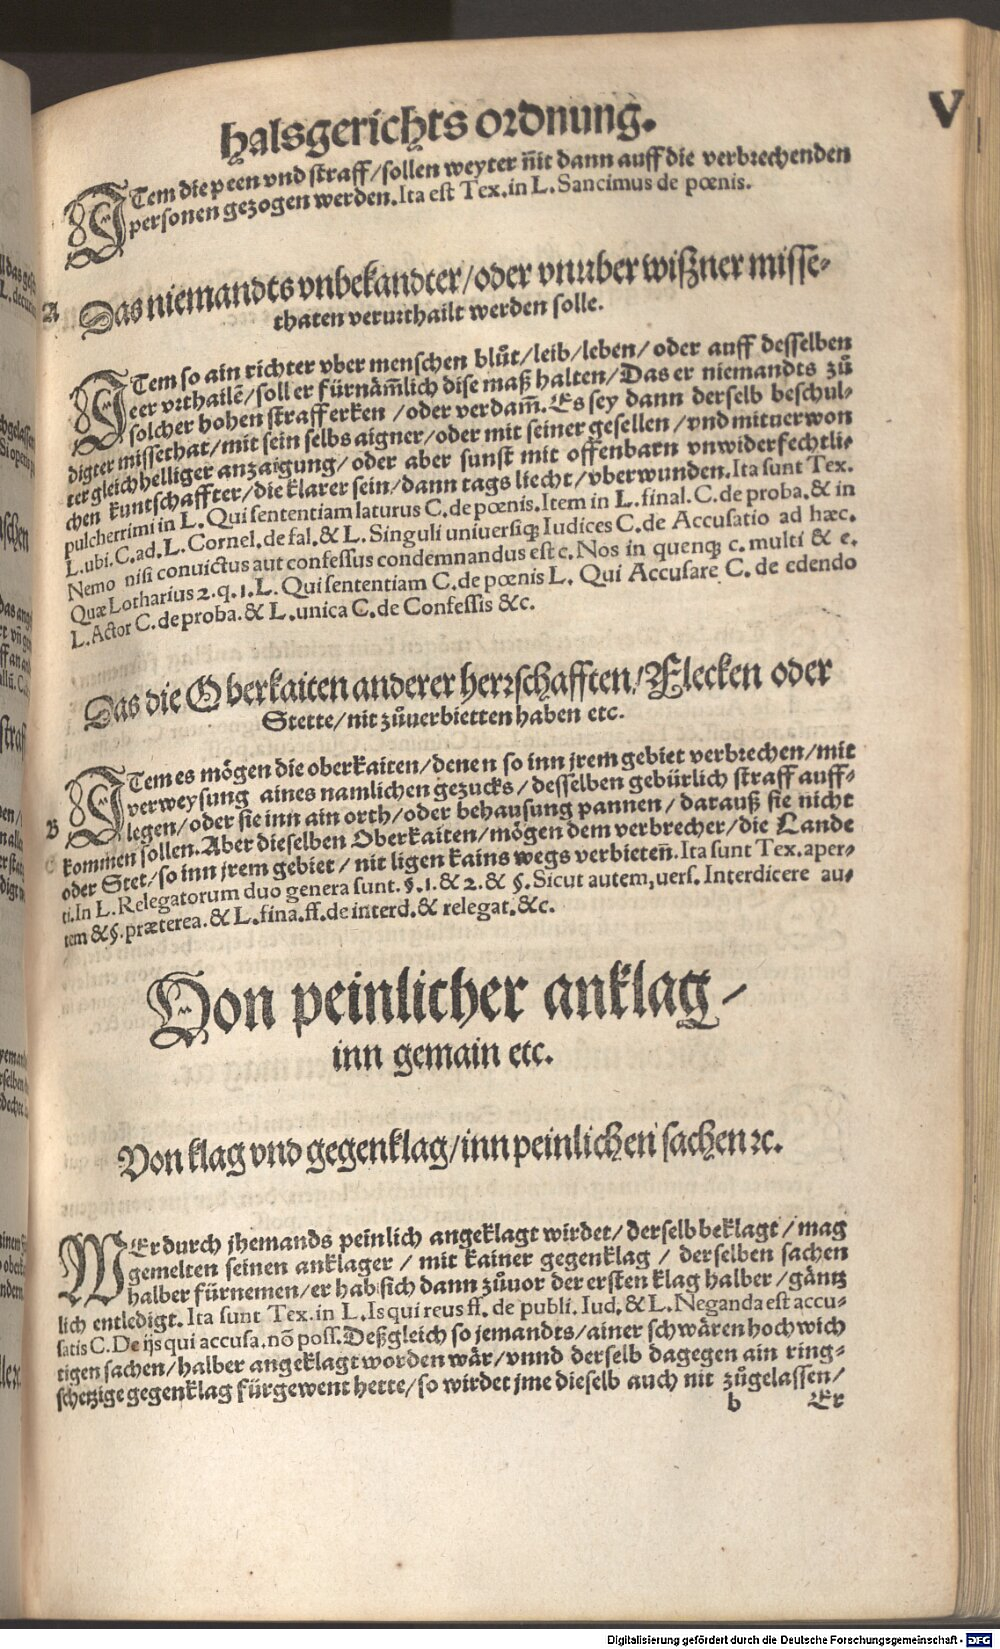 halsgerichts ordnung.
V
ITem die peen vnd straff/sollen weyter nit dann auff die verbrechenden
personen gezogen werden. Ita est Tex. in L. Sancimus de pœnis.
A
Das niemandts vnbekandter/oder vnuberwißner misse-
thaten verurthailt werden solle.
ITem so ain richter vber menschen blůt/leib/leben/oder auff desselben
eer vrthailẽ/soll er fürnäm̃lich dise maß halten/Das er niemandts zů
solcher hohen straff erken/oder verdam̃. Es sey dann derselb beschul-
digter missethat/mit sein selbs aigner/oder mit seiner gesellen/vnd mituerwon
ter gleichhelliger anzaigung/oder aber sunst mit offenbarn vnwiderfechtli-
chen kuntschaffter/die klarer sein/dann tags liecht/vberwunden. Ita sunt Tex.
pulcherrimi in L. Qui sententiam laturus C. de pœnis. Item in L. final. C. de proba. & in
L. ubi. C. ad. L. Cornel. de fal. & L. Singuli uniuersiq; Iudices C. de Accusatio ad hæc.
Nemo nisi conuictus aut confessus condemnandus est c. Nos in quenq; c. multi & c.
Quæ Lotharius 2. q. 1. L. Qui sententiam C. de pœnis L. Qui Accusare C. de edendo
L. Actor C. de proba. & L. unica C. de Confessis &c.
Das die Oberkaiten anderer herrschafften/Flecken oder
Stette/nit zůuerbietten haben etc.
B
ITem es mögen die oberkaiten/denen so inn jrem gebiet verbrechen/mit
verweysung aines namlichen gezucks/desselben gebürlich straff auff-
legen/oder sie inn ain orth/oder behausung pannen/darauß sie nicht
kommen sollen. Aber dieselben Oberkaiten/mögen dem verbrecher/die Lande
oder Stet/so inn jrem gebiet/nit ligen kains wegs verbietẽn. Ita sunt Tex. aper-
ti. In L. Relegatorum duo genera sunt. §. 1. & 2. & §. Sicut autem, uers. Interdicere au-
tem & §. præterea. & L. fina. ff. de interd. & relegat. &c.
Von peinlicher anklag/
inn gemain etc.
Von klag vnd gegenklag/inn peinlichen sachen ꝛc.
WEr durch jhemands peinlich angeklagt wirdet/derselb beklagt/mag
gemelten seinen anklager/mit kainer gegenklag/derselben sachen
halber fürnemen/er hab sich dann zůuor der ersten klag halber/gäntz
lich entledigt. Ita sunt Tex. in L. Is qui reus ff. de publi. Iud. & L. Neganda est accu-
satis C. De ijs qui accusa. nõ poss. Deßgleich so jemandts/ainer schwären hochwich
tigen sachen/halber angeklagt worden wär/vnnd derselb dagegen ain ring-
schetzige gegenklag fürgewent hette/so wirdet jme dieselb auch nit zůgelassen/
b Er
Digitalisierung gefördert durch die Deutsche Forschungsgemeinschaft - DFG